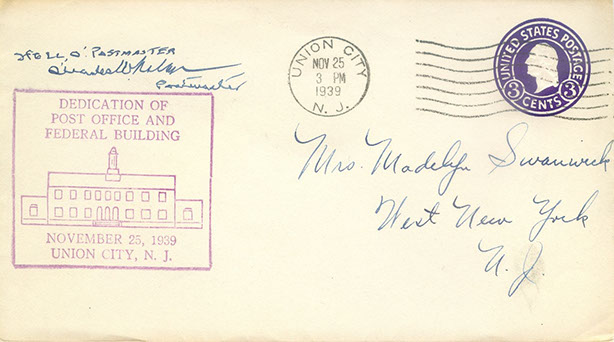 POSTMASTER
Postmaster
DEDICATION OF
POST OFFICE AND
FEDERAL BUILDING
NOVEMBER 25, 1939
UNION CITY, N. J.
UNION CITY
NOV 25
3 PM
1939
N. J.
UNITED STATES POSTAGE
3 CENTS 3
Mrs. Madelyn Swanwick
West New York
N. J.